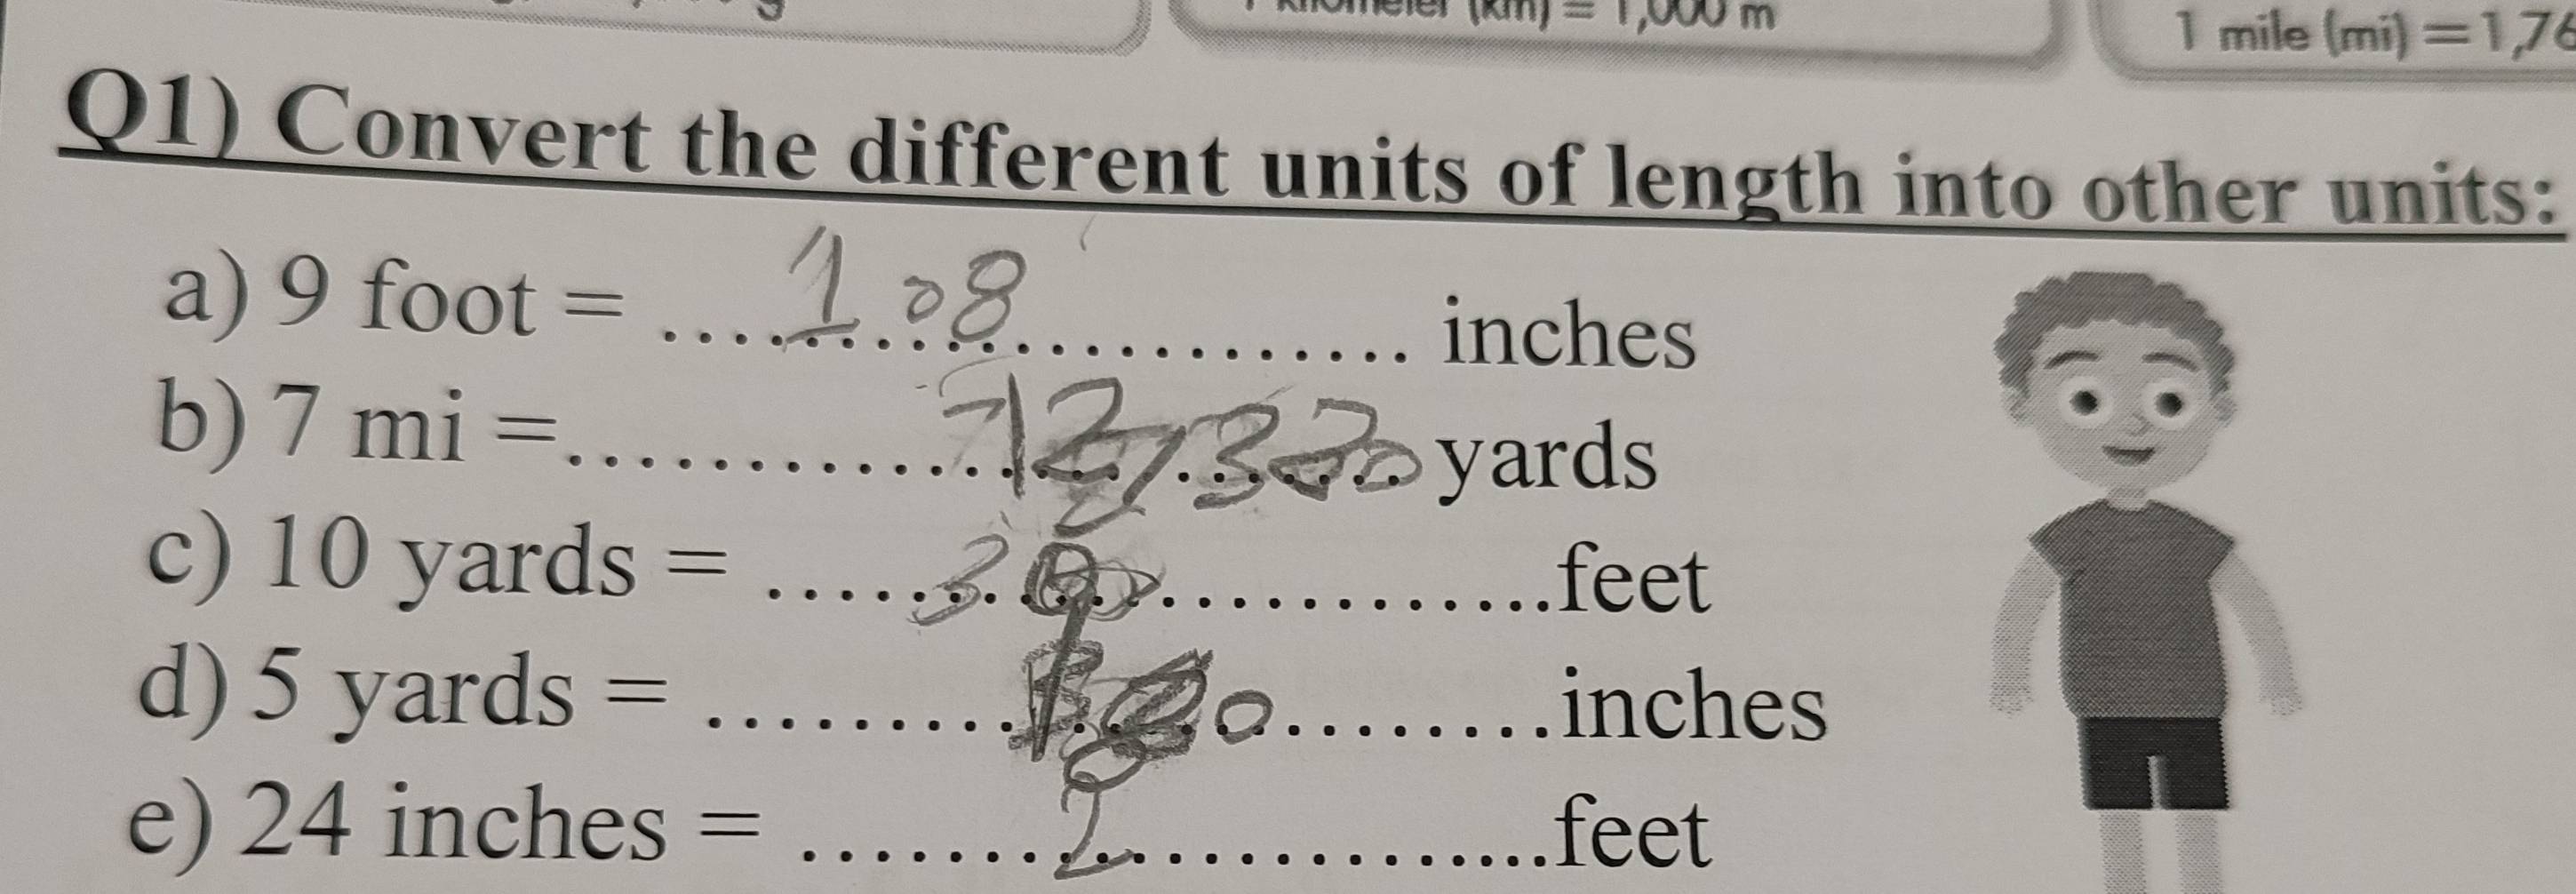 1 kilometer (km) = 1,000 m
1 mile (mi) = 1,76
Q1) Convert the different units of length into other units:
a) 9 foot = ....108.... inches
b) 7 mi =.... 12,320 yards
c) 10 yards = ....30....feet
d) 5 yards = ....180....inches
e) 24 inches = ....2....feet